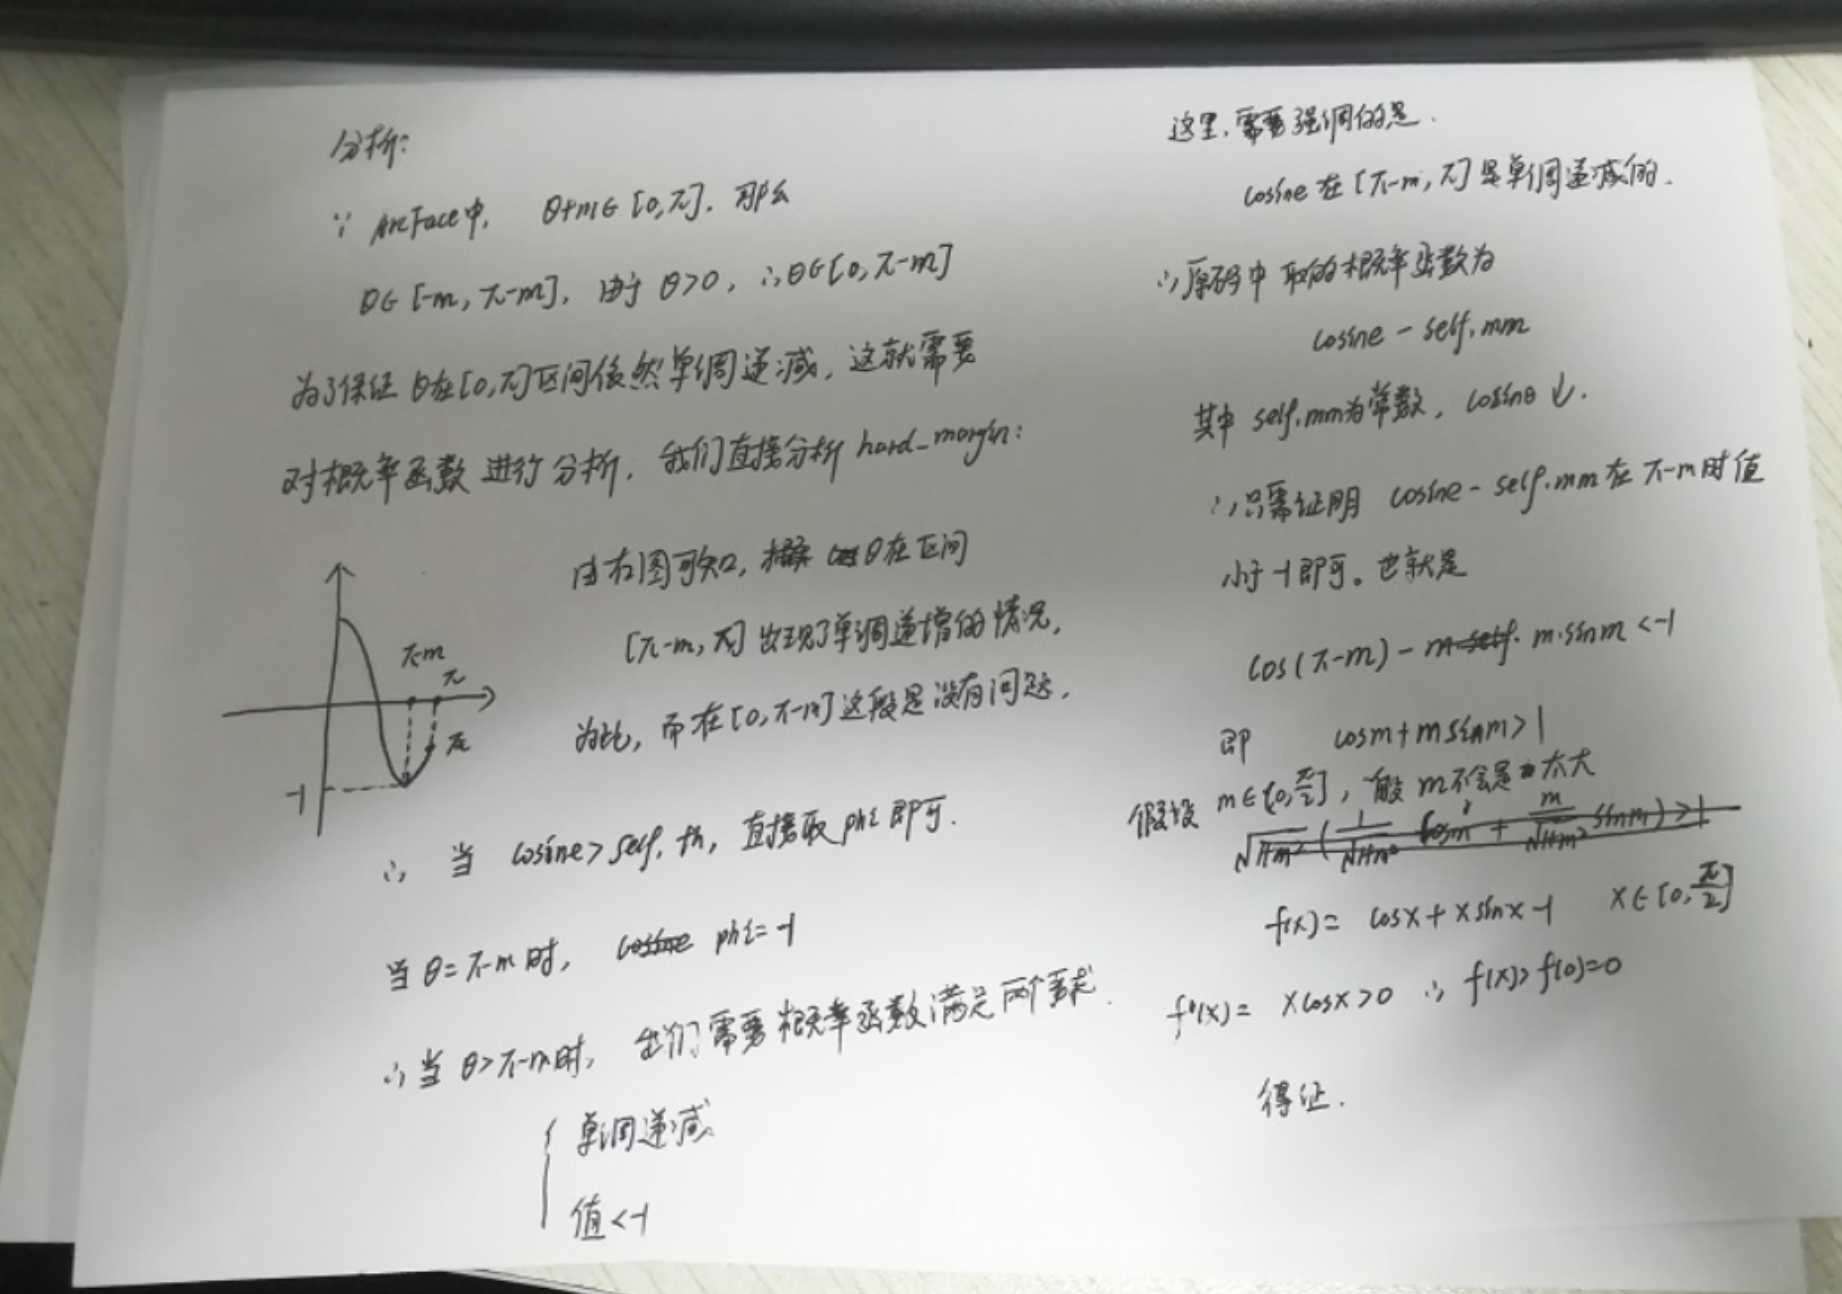 分析:
∵ ArcFace中, θ+m∈[0,π]. 那么
θ∈[-m, π-m], 由于 θ>0, ∴θ∈[0, π-m]
为了保证 θ在[0,π]区间依然单调递减, 这就需要
对概率函数进行分析. 我们直接分析 hard_margin:
由右图可知, θ在区间
[π-m, π] 出现了单调递增的情况,
为此, 而在[0, π-m]这段是没有问题.
π-m
π
π
-1
∴ 当 cosine > self.th, 直接取phi即可.
当 θ=π-m时, phi=-1
∴当 θ>π-m时, 我们需要概率函数满足两个要求.
单调递减
值<-1
这里, 需要强调的是.
cosine在[π-m, π]是单调递减的.
∴原码中取的概率函数为
cosine - self.mm
其中 self.mm为常数, cosinθ↓.
∴只需证明 cosine - self.mm在 π-m时值
小于-1即可。也就是
cos(π-m) - m·sinm < -1
即 cosm+msinm>1
假设 m∈[0,π/2], 一般m不会是太大
f(x) = cosx+xsinx-1 x∈[0,π/2]
f'(x) = xcosx>0 ∴ f(x)>f(0)=0
得证.